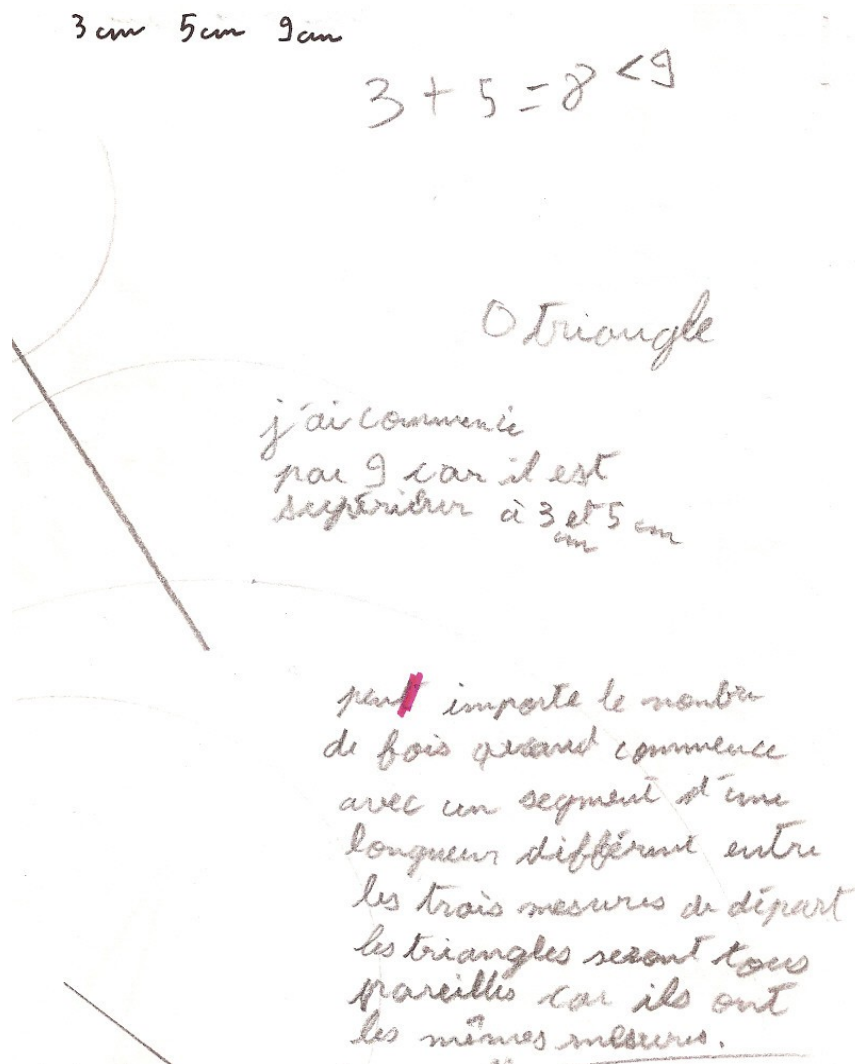 3 cm 5 cm 9 cm
3 + 5 = 8 < 9
0 triangle
j'ai commencé
par 9 car il est
supérieur à 3 cm et 5 cm
peut importe le nombre
de fois quand commence
avec un segment d'une
longueur différent entre
les trois mesures de départ
les triangles seront tous
pareilles car ils ont
les mêmes mesures.